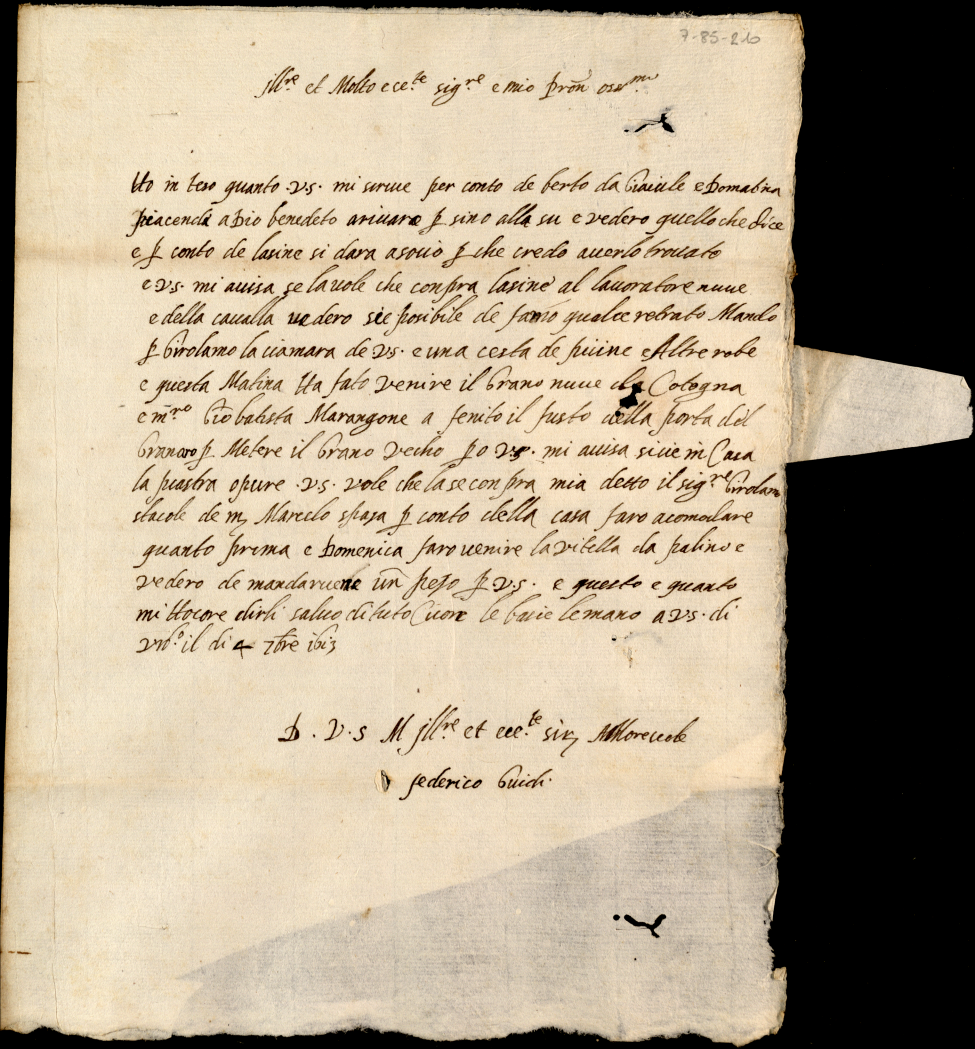 7-85-210
jll.re et Molto ece.te sig.re e mio pron oss.mo
Ho in teso quanto .v.s. mi scriue per conto de berto da e Domatina
piacendi a Dio benedeto ariuaro p sino alla su e vedero quello che dice
e p conto de lasine si dara asouio p che credo auerlo trouato
e v.s. mi auisa se la uole che conpra lasine al lauoratore nuue
e della caualla uedero sie posibile de farno qualce retrato Mando
p Girolamo la ciamara de v.s. e una cesta de e Altre robe
e questa Matina Ha fato venire il Grano nuue da Cotogna
e m.ro Gio batista Marangone a fenito il fusto della porta del
Granaro p Metere il Grano Vechio po v.s. mi auisa sive in Casa
la piastra opure .v.s. vole che la se conpra mia detto il sig.re Girolamo
de m Marcelo p conto della casa faro acomodare
quanto prima e Domenica faro uenire la vitella da palino e
vedero de mandaruene un pezo p v.s. e questo e quanto
mi Hocore dirli saluo di tuto Cuore le bacie le mano a v.s. di
il di 4 7bre
D . V . S M jll.re et ece.te Amoreuole
federico Guidi